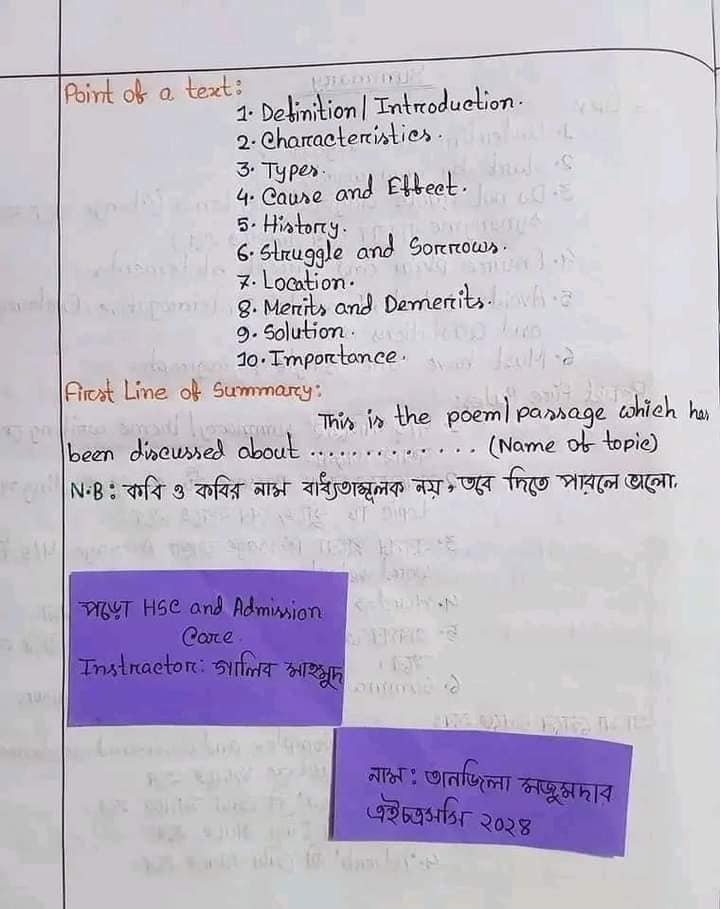 Point of a text:
1. Definition/Introduction.
2. Characteristics.
3. Types.
4. Cause and Effect.
5. History.
6. Struggle and Sorrows.
7. Location.
8. Merits and Demerits.
9. Solution.
10. Importance.
First Line of Summary:
This is the poem/passage which has
been discussed about .............. (Name of topic)
N.B: কবি ও কবির নাম বাধ্যতামূলক নয়, তবে দিতে পারলে ভালো.
পড়ো HSC and Admission
Care.
Instractor: গালিব মাহমুদ
নাম: তানজিলা মজুমদার
এইচএসসি ২০২৪